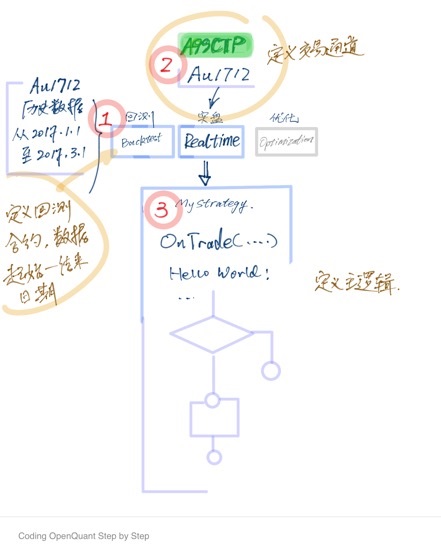 A99CTP
2
Au1712
定义交易通道
Au1712
历史数据
从2017.1.1
至2017.3.1
1
回测
实盘
优化
Backtest
Realtime
Optimization
定义回测
合约,数据
起始-结束
日期
3
MyStrategy.
OnTrade(....)
Hello World!
...
定义主逻辑.
Coding OpenQuant Step by Step